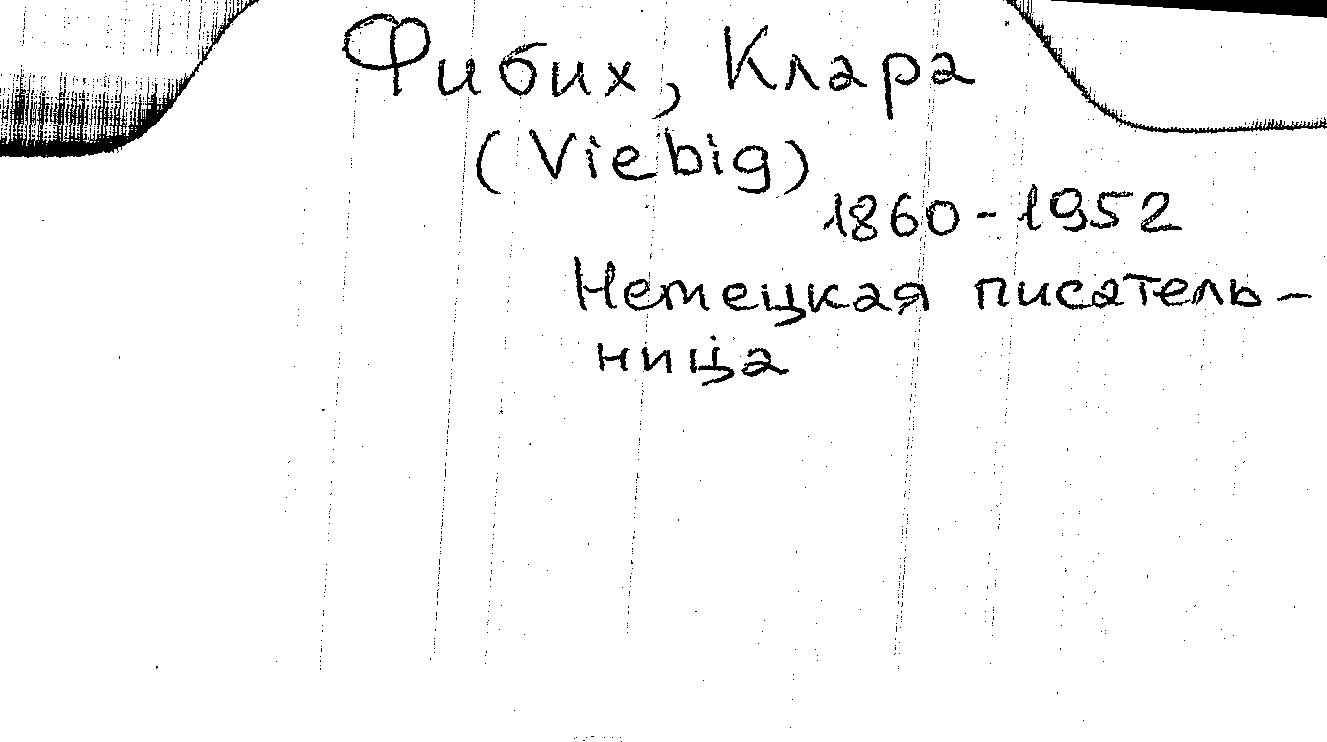 Фибих, Клара
(Viebig)
1860-1952
Немецкая писатель-
ница